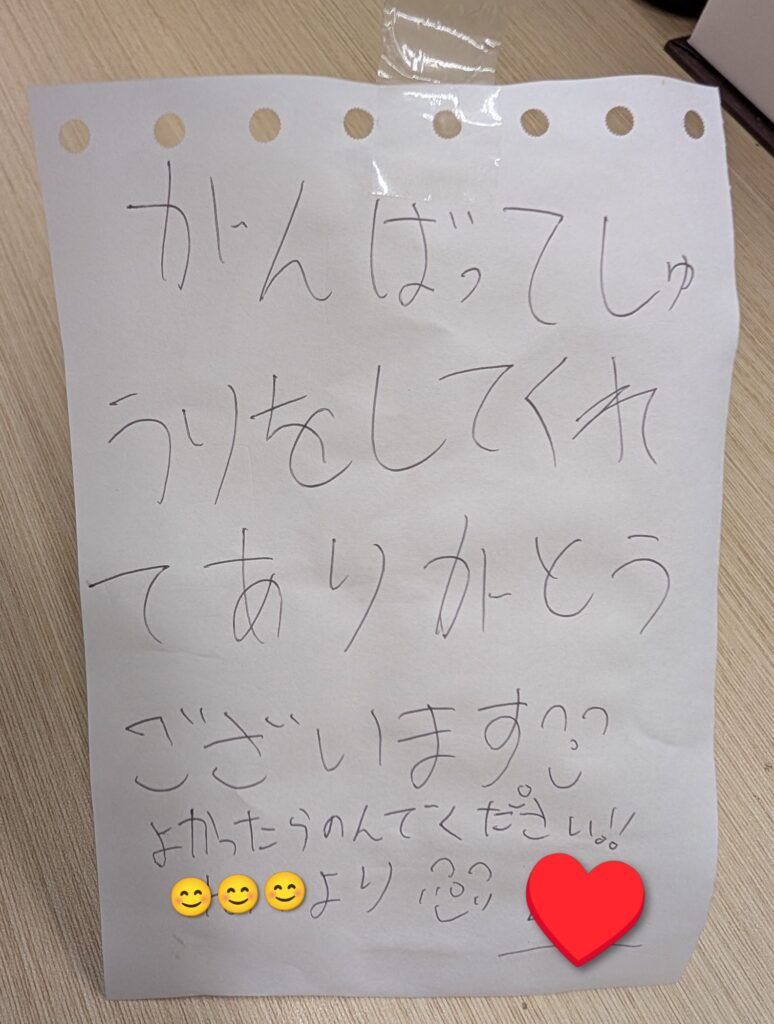 がんばってしゅ
うりをしてくれ
てありがとう
ございます
よかったらのんでください!!
より